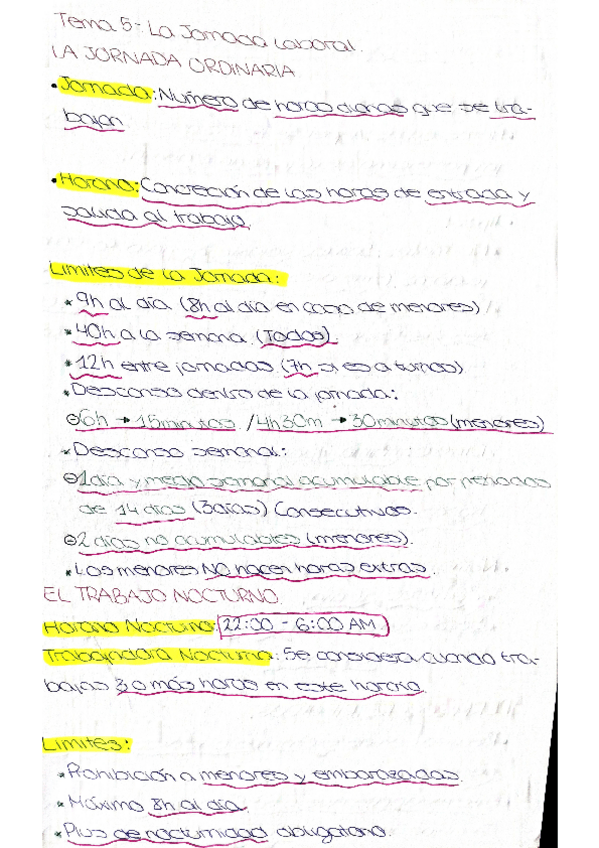 Tema 5- La Jornada Laboral.
LA JORNADA ORDINARIA
• Jornada: Número de horas diarias que se tra-
bajan
• Horario: Concreción de las horas de entrada y
salida al trabajo.
Limites de la Jornada:
* 9h al día (8h al día en caso de menores)
* 40h a la semana. (Todos).
* 12h entre jornadas (7h si es a turnos)
* Descanso dentro de la jornada:
⊖6h → 15minutos /4h30m → 30minutos (menores)
* Descanso semanal:
⊖1día y medio semanal acumulable por periodos
de 14 días (3días) Consecutivos.
⊖2 días no acumulables (menores).
* Los menores NO hacen horas extras.
EL TRABAJO NOCTURNO.
Horario Nocturno: 22:00 - 6:00 AM
Trabajador/a Nocturno: Se considera cuando tra-
bajas 3 o más horas en este horario.
Limites:
* Prohibición a menores y embarazadas.
* Máximo 8h al día.
* Plus de nocturnidad obligatorio.